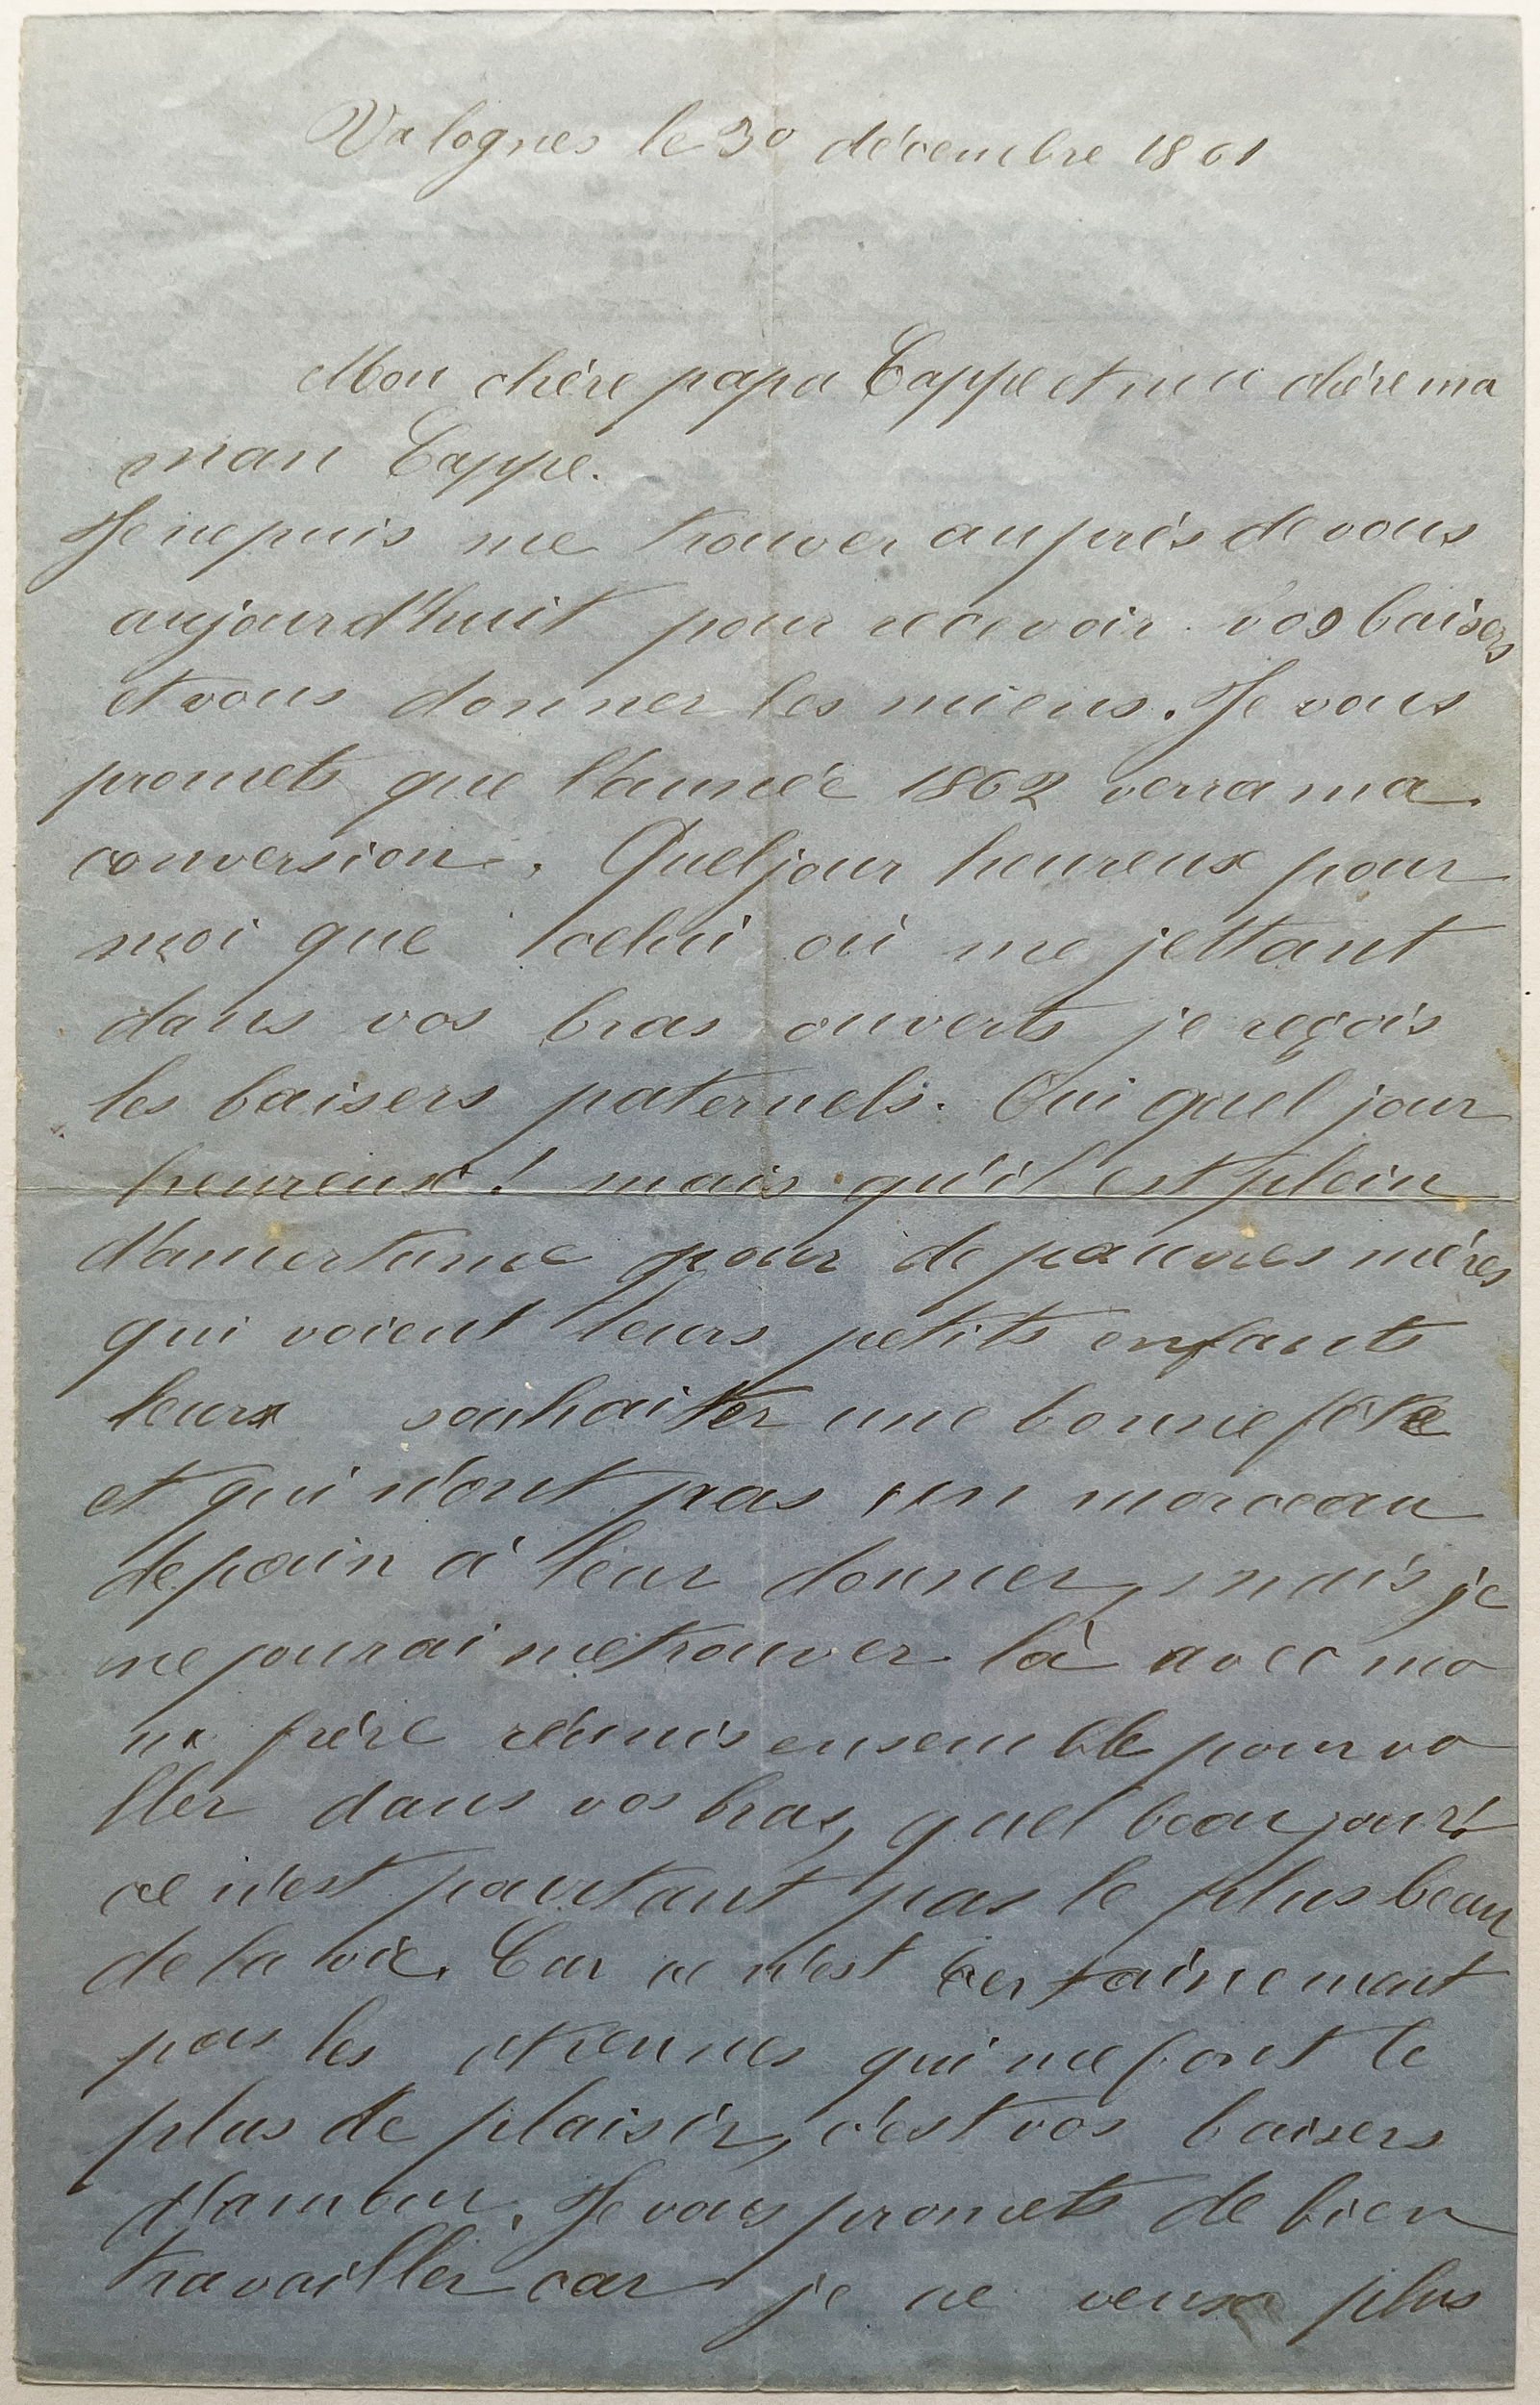 Valognes le 30 décembre 1861
Mon chère papa Cappe et ma chère ma
man Cappe.
Je ne puis me trouver auprès de vous
aujourd'huit pour recevoir vos baisers
et vous donner les miens. Je vous
promets que l'année 1862 verra ma
conversion. Quel jour heureux pour
moi que celui où me jettant
dans vos bras ouverts je reçois
les baisers paternels. Oui quel jour
heureux! mais qu'il est plein
d'amertume pour de pauvres mères
qui voient leurs petits enfants
leurs souhaiter une bonne fête
et qui n'ont pas un morceau
de pain à leur donner, mais je
ne pourai me trouver là avec mo
n frère réunis ensemble pour vo
ller dans vos bras, quel beau jour!
ce n'est pourtant pas le plus beau
de la vie. Car ce n'est certainement
pas les etrennes qui me font le
plus de plaisir, c'est vos baisers
d'amour. Je vous promets de bien
travailler car je ne veux plus